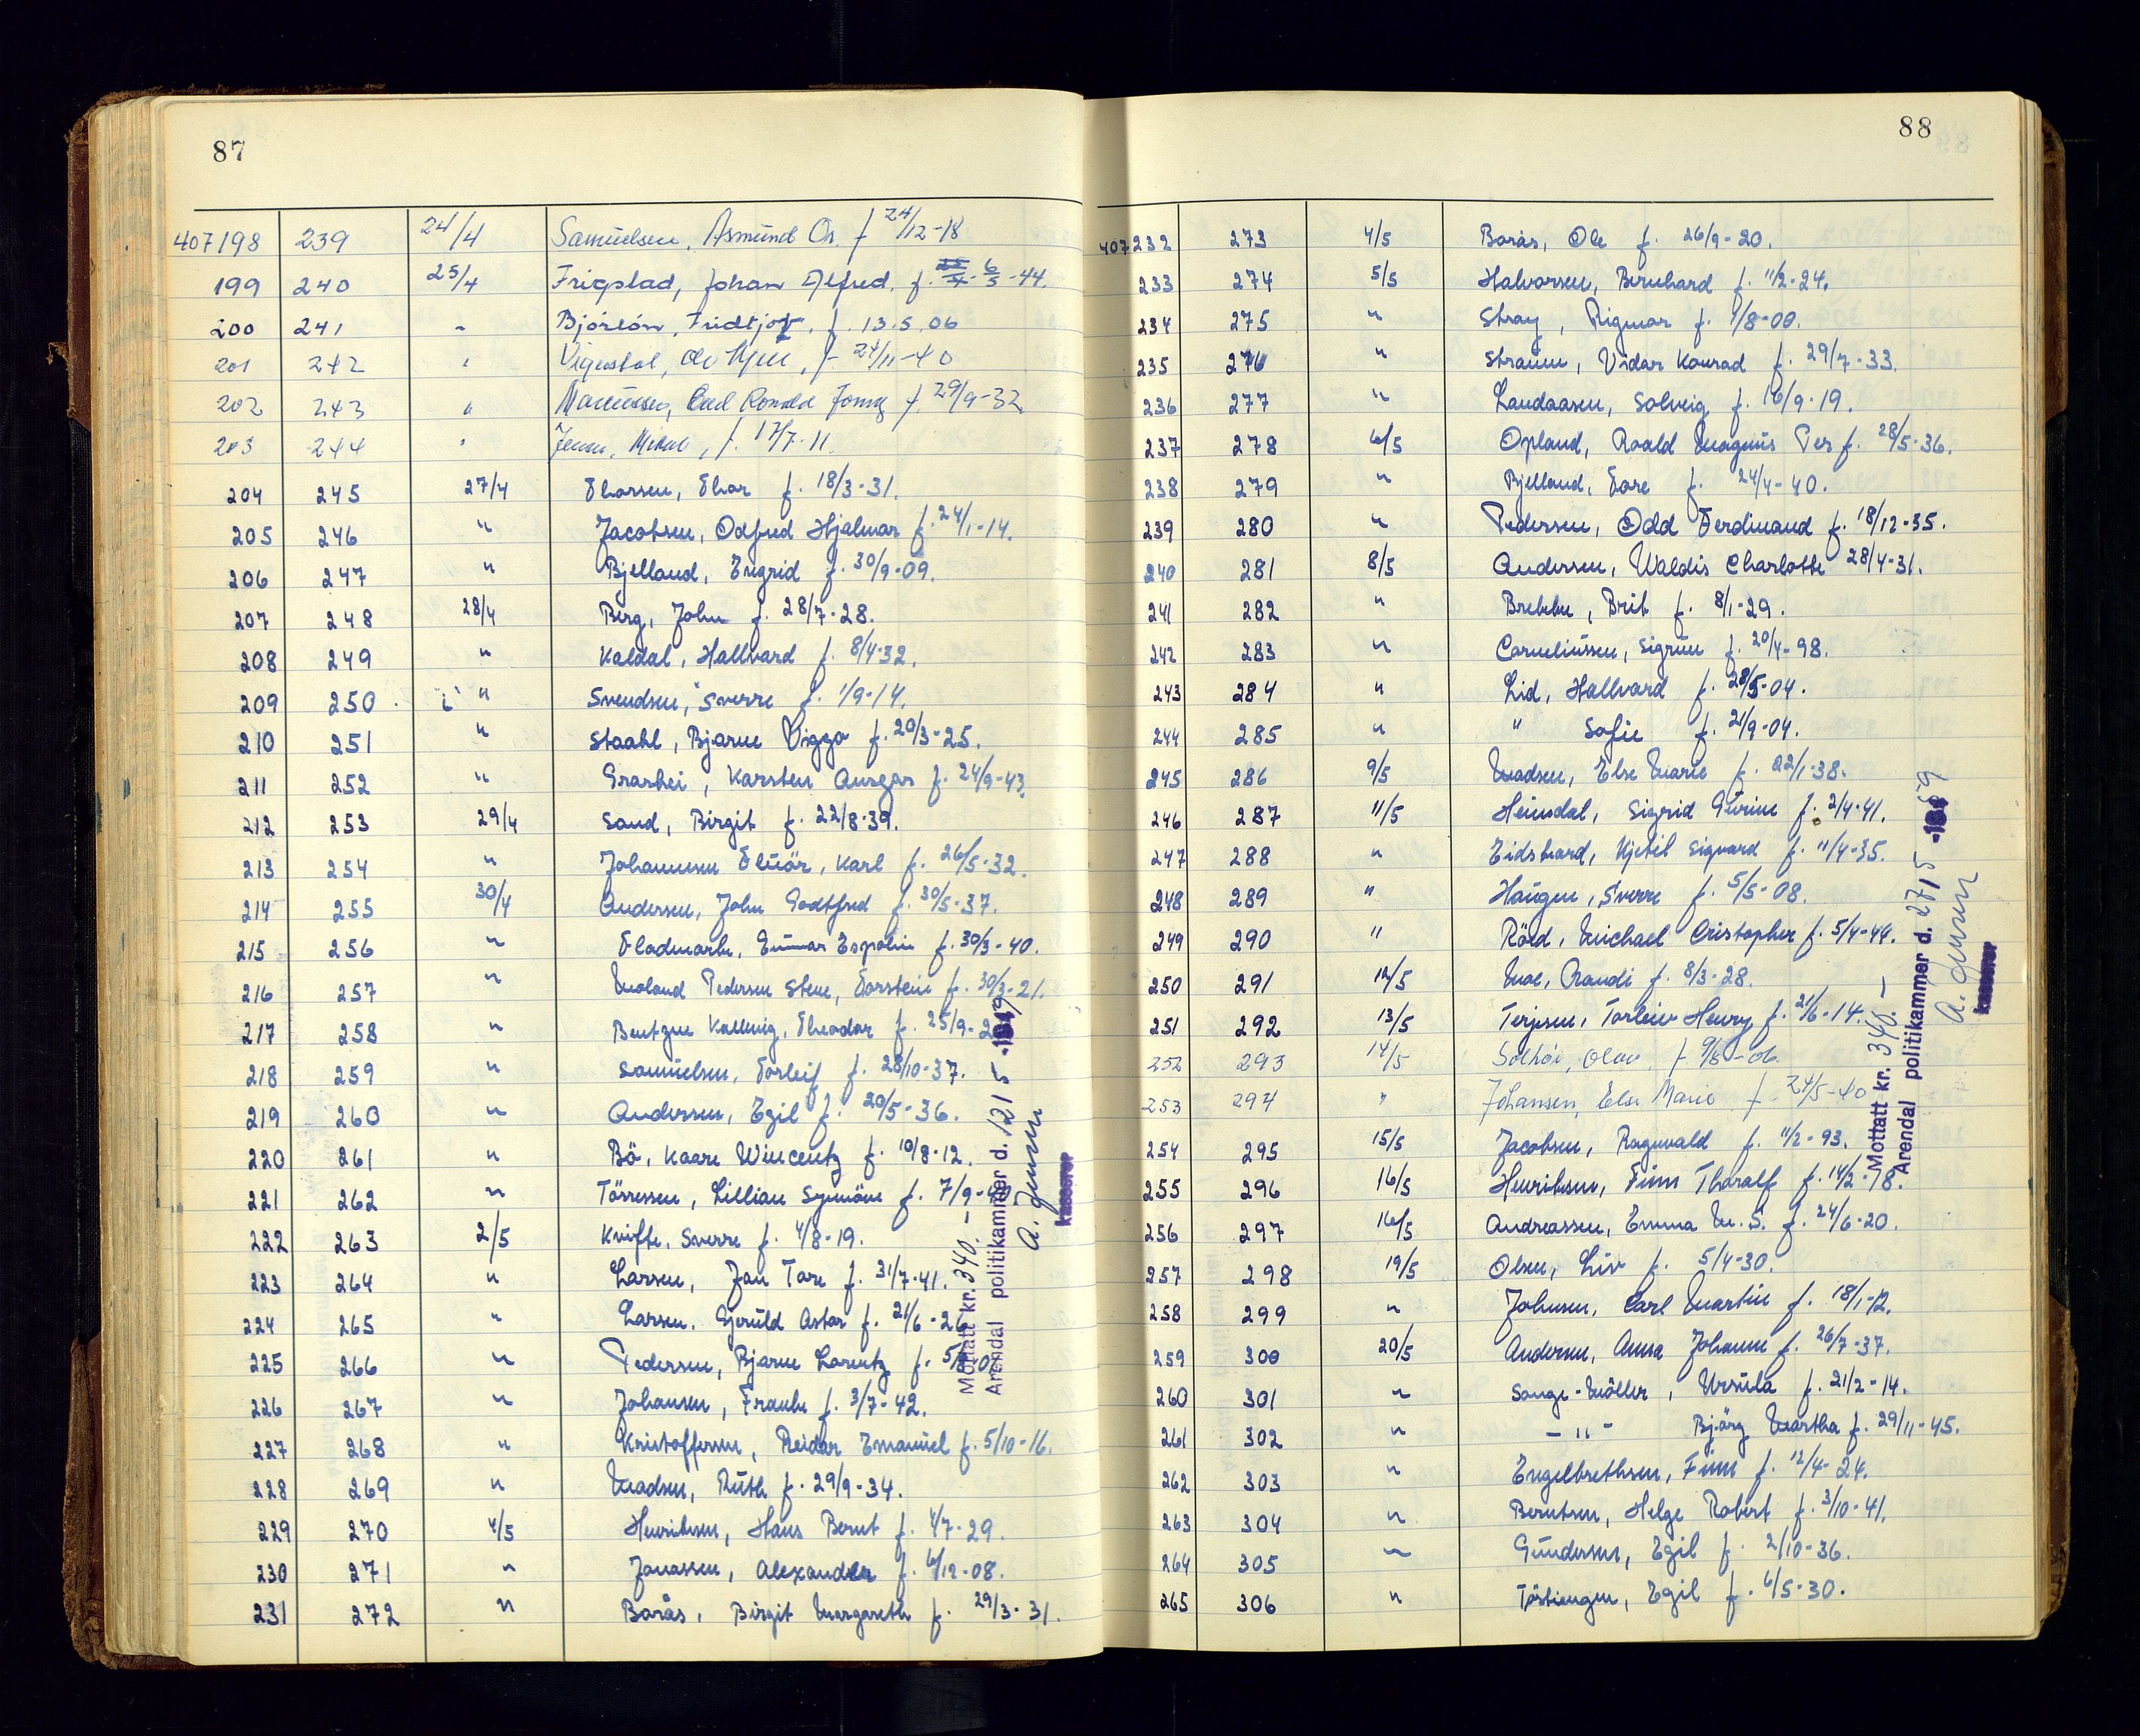 87
407198 239 24/4 Samuelsen, Asmund Os. f 24/12-18
199 240 25/4 Frigstad, Johan Alfred. f. 6/5-44.
200 241 " Fridtjof, f. 13.5.06
201 242 " f. 24/11-40
202 243 " Ronald f 29/9-32
203 244 " f. 17/7-11.
204 245 27/4 Thorsen, Thor f. 18/3-31.
205 246 " Jacobsen, Odfred Hjalmar f. 24/1-14.
206 247 " Bjelland, Engrid f. 30/9-09.
207 248 28/4 Berg, John f. 28/7-28.
208 249 " Kaldal, Hallvard f. 8/4-32.
209 250 " Svendsen, Sverre f. 1/9-14.
210 251 " Staahl, Bjarne Viggo f. 20/3-25.
211 252 " Grasbei, Karsten Ansgar f. 24/9-43.
212 253 29/4 Sand, Birgit f. 22/8-39.
213 254 " Johannesen Karl f. 26/5-32.
214 255 30/4 Andersen, John Godtfred f. 30/5-37.
215 256 " Fladmark, Gunnar Espolin f. 30/3-40.
216 257 " Moland Pedersen Stene, Torstein f. 30/3-21.
217 258 " Bentzen Kallevig, Theodor f. 25/9-2
218 259 " Samuelsen, Torleif f. 28/10-37.
219 260 " Andersen, Egil f. 20/5-36.
220 261 " Bö, Kaare Wincentz f. 10/8-12.
221 262 " Törressen, Lillian Synnöve f. 7/9-
222 263 2/5 Knifte, Sverre f. 4/8-19.
223 264 " Larsen, Jan Tore f. 31/7-41.
224 265 " Larsen, Gjeruld Astor f. 21/6-26
225 266 " Pedersen, Bjarne Lorentz f.
226 267 " Johansen, Frank f. 3/7-42.
227 268 " Kristoffersen, Reidar Emanuel f. 5/10-16.
228 269 " Madsen, Ruth f. 29/9-34.
229 270 4/5 Henriksen, Hans Bernt f. 4/7-29.
230 271 " Jonassen, Alexander f. 6/12-08.
231 272 " Borås, Birgit Margareth f. 29/3-31.
Mottatt kr. 340.-
Arendal politikammer d. 12/5
A. Jensen
kasserer
88
407232 273 4/5 Borås, Ole f. 26/9-20.
233 274 5/5 Halvorsen, Bernhard f. 11/2-24.
234 275 " Stray, Rigmor f. 1/8-00.
235 276 " Straum, Vidar Konrad f. 29/7-33.
236 277 " Landaasen, Solveig f. 16/9-19.
237 278 6/5 Opland, Roald Magnus Per f. 28/5-36.
238 279 " Bjelland, Tore f. 24/4-40.
239 280 " Pedersen, Odd Ferdinand f. 18/12-35.
240 281 8/5 Andersen, Waldis Charlotte 28/4-31.
241 282 " Brekke, Brit f. 8/1-29.
242 283 " Corneliussen, Sigrun f. 20/4-98.
243 284 " Lid, Hallvard f. 28/5-04.
244 285 " " Sofie f. 21/9-04.
245 286 9/5 Madsen, Else Marie f. 22/1-38.
246 287 11/5 Heimdal, Sigrid Gurine f. 2/4-41.
247 288 " Eidsbard, Kjetil Sigvard f. 11/4-35.
248 289 " Haugen, Sverre f. 5/5-08.
249 290 " Röed, Michael Cristopher f. 5/4-44.
250 291 12/5 Moe, Randi f. 8/3-28.
251 292 13/5 Terjesen, Torleiv Henry f. 21/6-14.
252 293 14/5 Solhöi, Olav f. 9/8-06
253 294 " Johansen, Else Marie f. 24/5-40
254 295 15/5 Jacobsen, Ragnvald f. 11/2-93.
255 296 16/5 Henriksen, Finn Tharalf f. 14/2-18.
256 297 16/5 Andreassen, Emma M.S. f. 24/6-20.
257 298 19/5 Olsen, Liv f. 5/4-30.
258 299 " Johnsen, Carl Martin f. 18/1-12.
259 300 20/5 Andersen, Anna Johanne f. 26/7-37.
260 301 " Sange-Möller, Ursula f. 21/2-14.
261 302 " - " - Björg Martha f. 29/11-45.
262 303 " Engelbrethsen, Finn f. 12/4-24.
263 304 " Berntsen, Helge Robert f. 3/10-41.
264 305 " Gundersen, Egil f. 2/10-36.
265 306 " Egil f. 6/5-30.
Mottatt kr. 340.-
Arendal politikammer d. 27/5 -1959
A. Jensen
kasserer